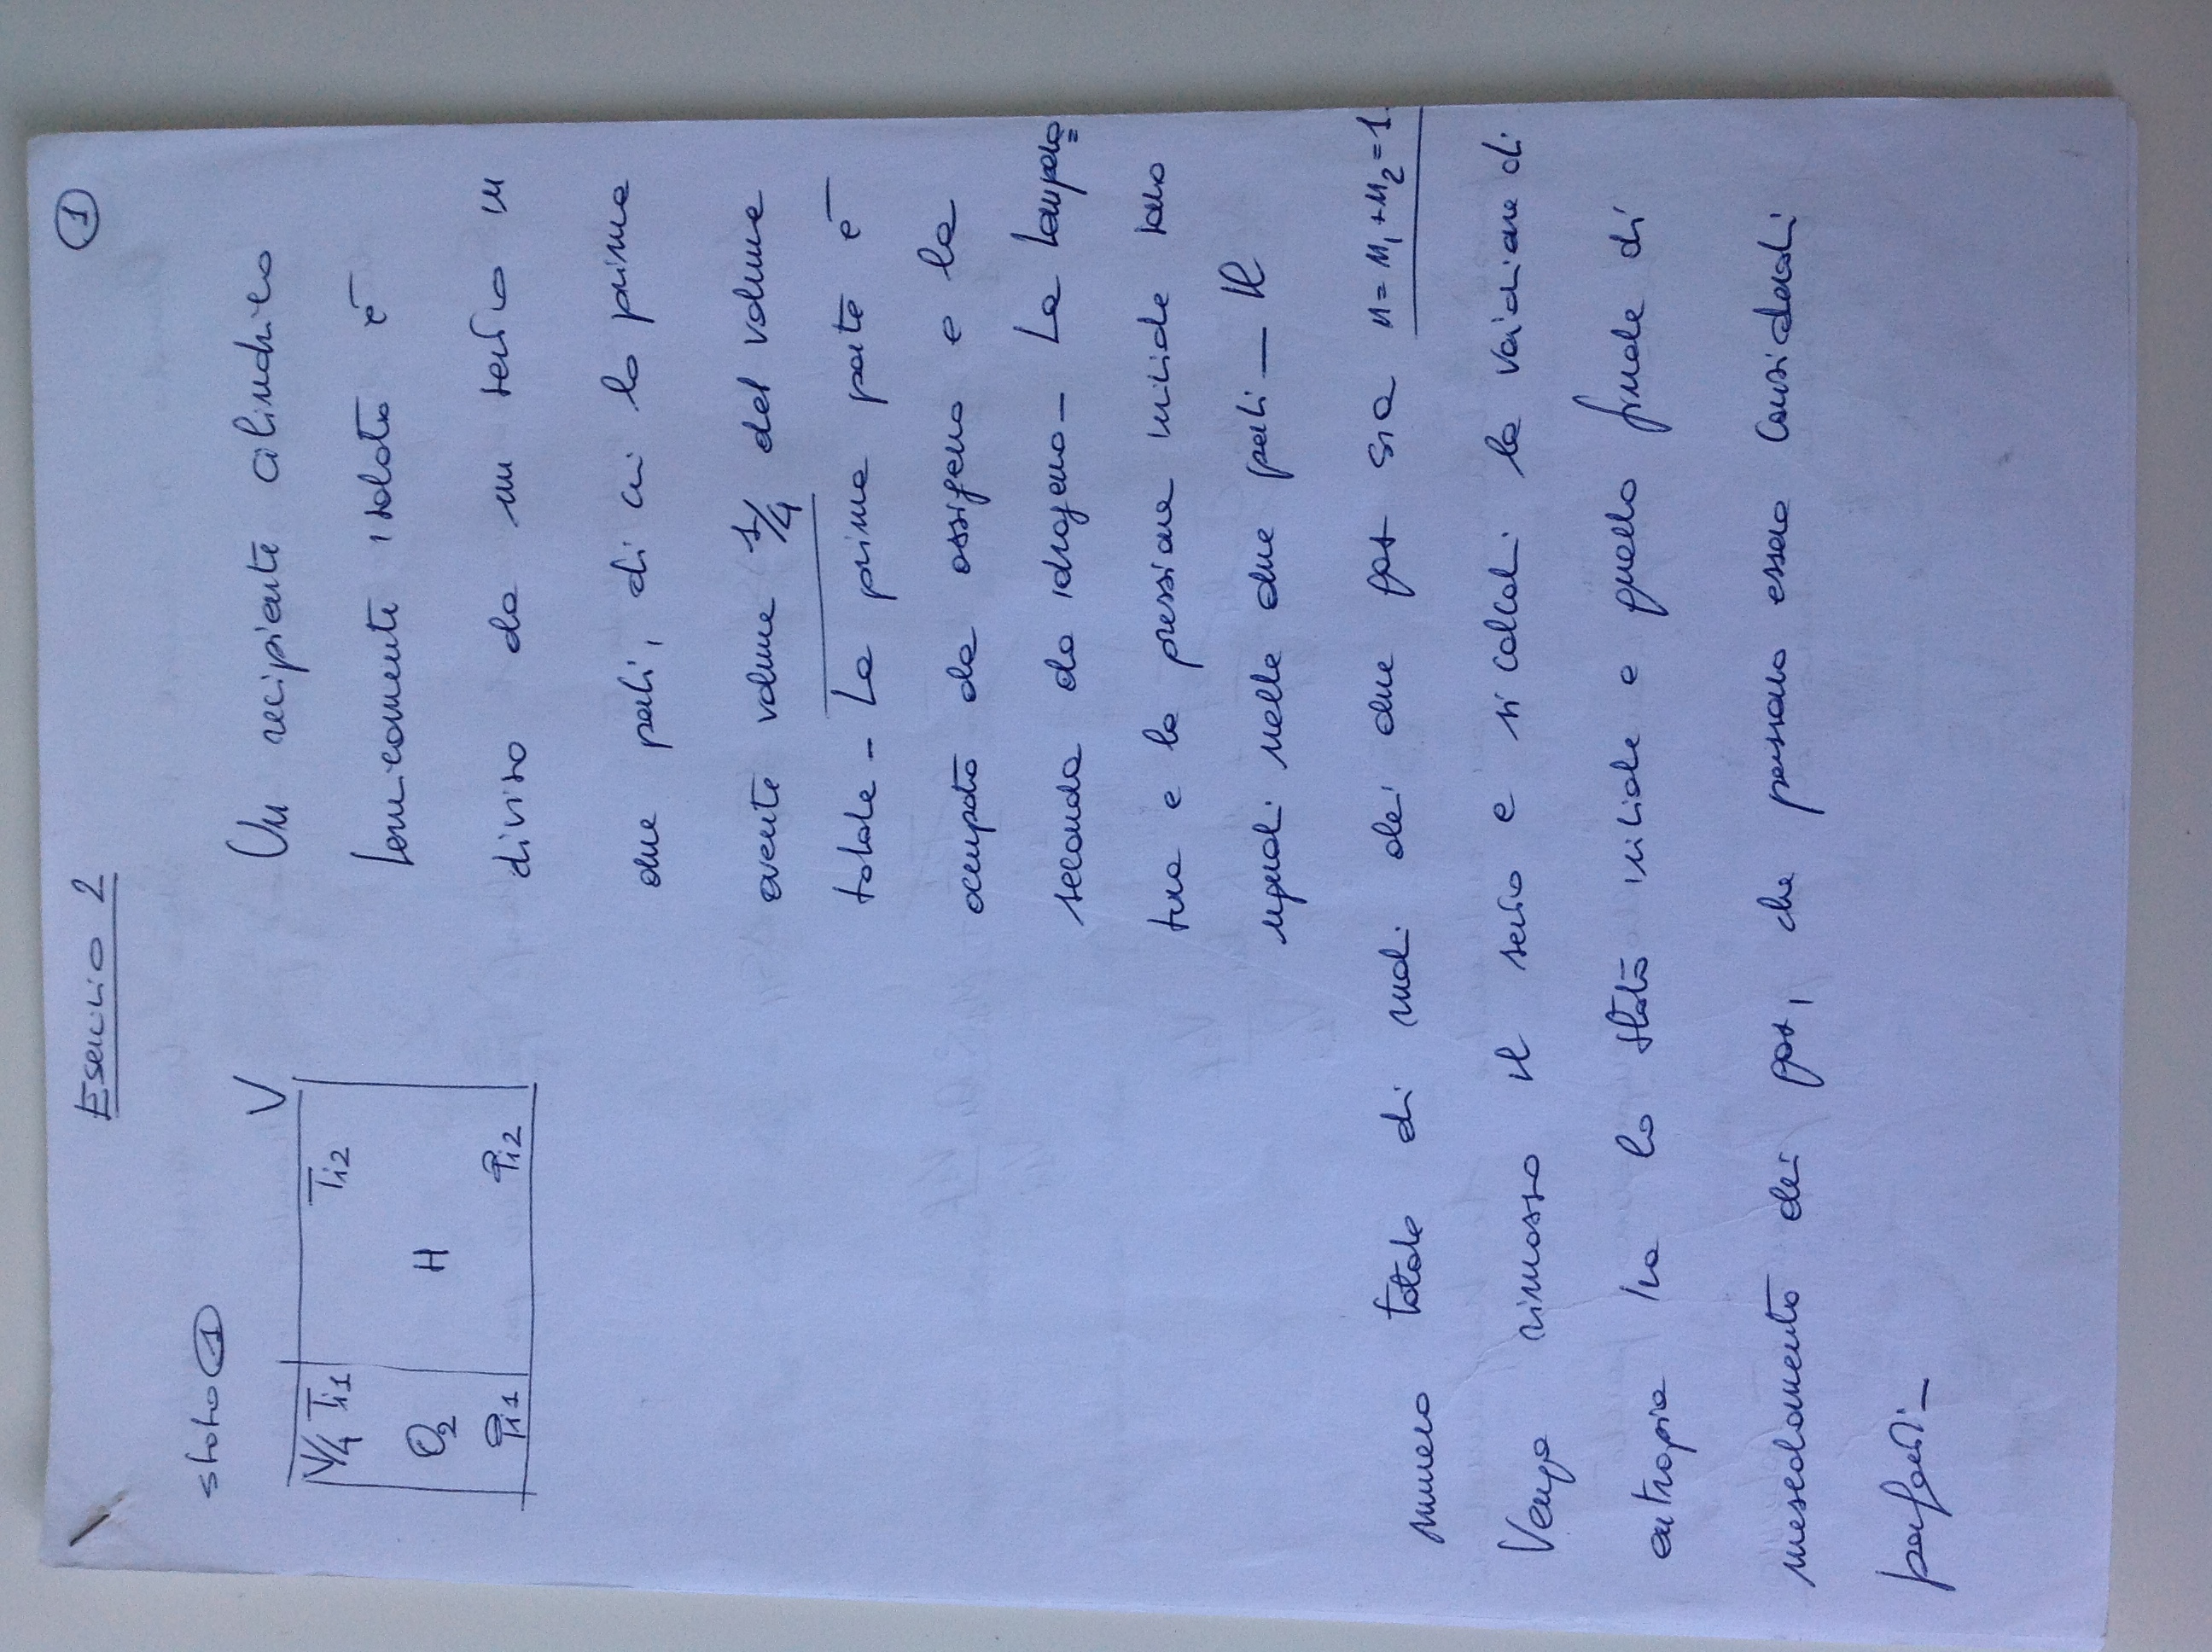 Esercizio 2
1
stato 1
V
V/4 Ti1 Ti2
O2 H
Pi1 Pi2
Un recipiente cilindrico
termicamente isolato è
diviso da un setto in
due parti, di cui la prima
avente volume 1/4 del volume
totale - La prima parte è
occupata da ossigeno e la
seconda da idrogeno - La tempera=
tura e la pressione iniziale sono
uguali nelle due parti - Il
numero totale di moli dei due gas sia n = n1 + n2 = 1.
Venga rimosso il setto e si calcoli la variazione di
entropia tra lo stato iniziale e quello finale di
mescolamento dei gas, che possono essere considerati
perfetti -